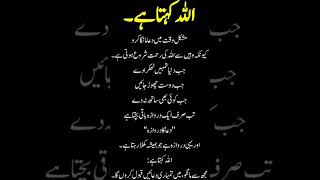 اللہ کہتا ہے۔
مشکل وقت میں دعا مانگا کرو
کیونکہ وہیں سے اللہ کی رحمت شروع ہوتی ہے۔
جب دنیا تمہیں ٹھکرا دے
جب دوست چھوڑ جائیں
جب کوئی بھی ساتھ نہ دے
تب صرف ایک دروازہ باقی بچتا ہے
"دعا کا دروازہ"
اور یہی دروازہ ہے جو ہمیشہ کھلا رہتا ہے۔
اللہ کہتا ہے:
مجھ سے مانگو، میں تمہاری دعائیں قبول کروں گا۔